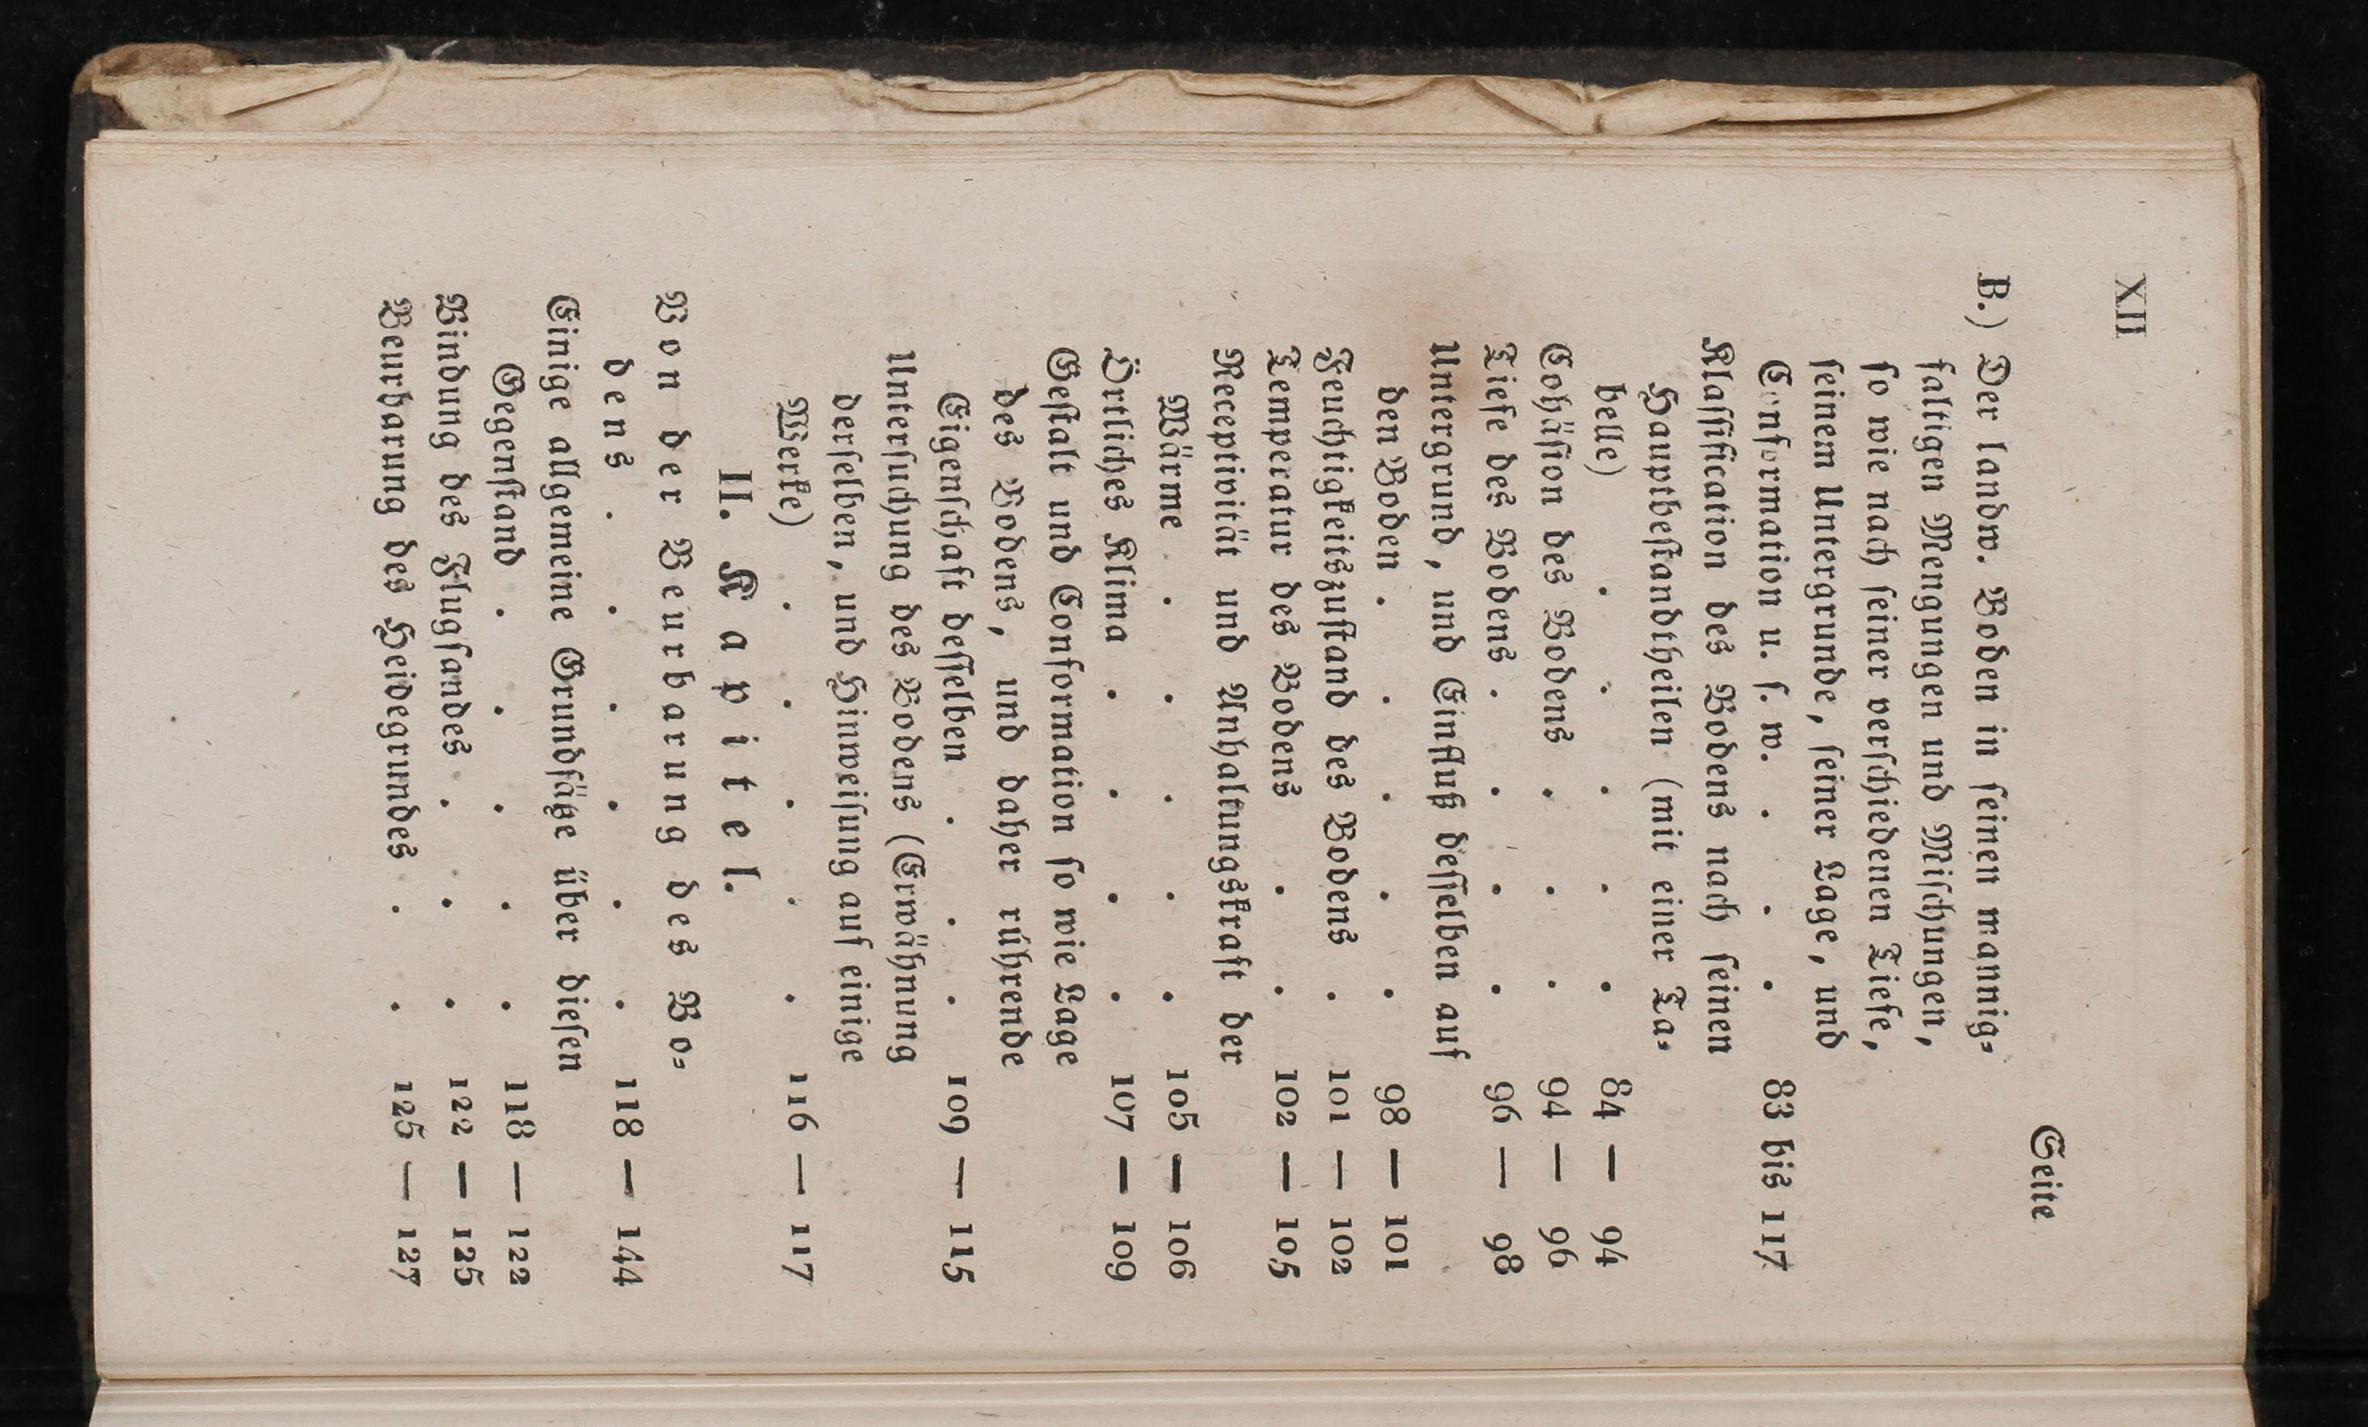 XII
Seite
B.) Der landw. Boden in ſeinen mannig-
faltigen Mengungen und Miſchungen,
ſo wie nach ſeiner verſchiedenen Tiefe,
ſeinem Untergrunde, ſeiner Lage, und
Conformation u. ſ. w. . . . 83 bis 117
Klaſſification des Bodens nach ſeinen
Hauptbeſtandtheilen (mit einer Ta-
belle) . . . . . 84 — 94
Cohäſion des Bodens . . . 94 — 96
Tiefe des Bodens . . . . 96 — 98
Untergrund, und Einfluß deſſelben auf
den Boden . . . . . 98 — 101
Feuchtigkeitszuſtand des Bodens . 101 — 102
Temperatur des Bodens . . 102 — 105
Receptivität und Anhaltungskraft der
Wärme . . . . . 105 — 106
Örtliches Klima . . . . 107 — 109
Geſtalt und Conformation ſo wie Lage
des Bodens, und daher rührende
Eigenſchaft deſſelben . . . 109 — 115
Unterſuchung des Bodens (Erwähnung
derſelben, und Hinweiſung auf einige
Werke) . . . . . 116 — 117
II. Kapitel.
Von der Beurbarung des Bo-
dens . . . . . . 118 — 144
Einige allgemeine Grundſätze über dieſen
Gegenſtand . . . . . 118 — 122
Bindung des Flugſandes . . . 122 — 125
Beurbarung des Heidegrundes . . 125 — 127